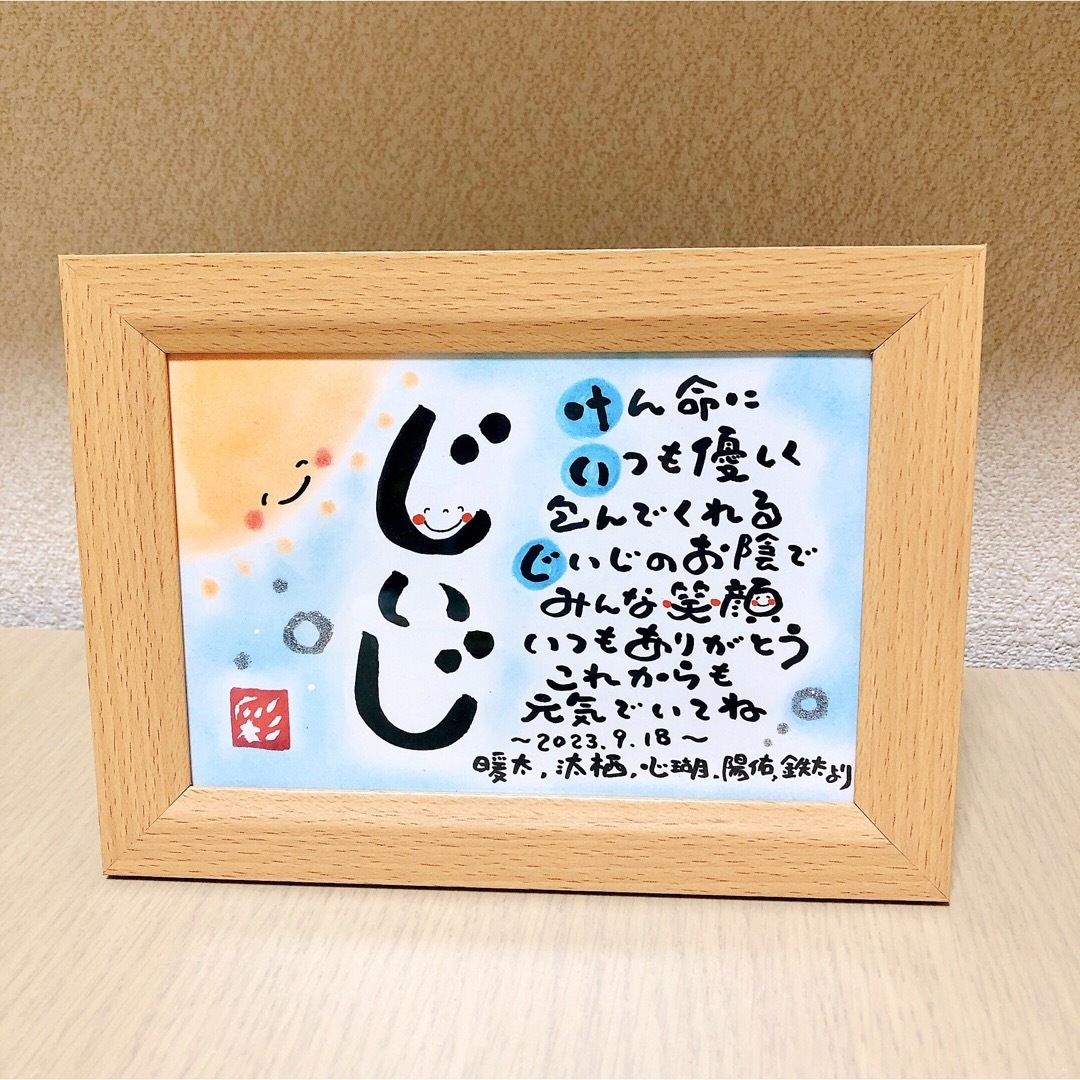 じいじ
けん命に
いつも優しく
包んでくれる
じいじのお陰で
みんな笑顔
いつもありがとう
これからも
元気でいてね
～2023.9.18～
暖太,汰栖,心瑚,陽佑,鉄太より
彩